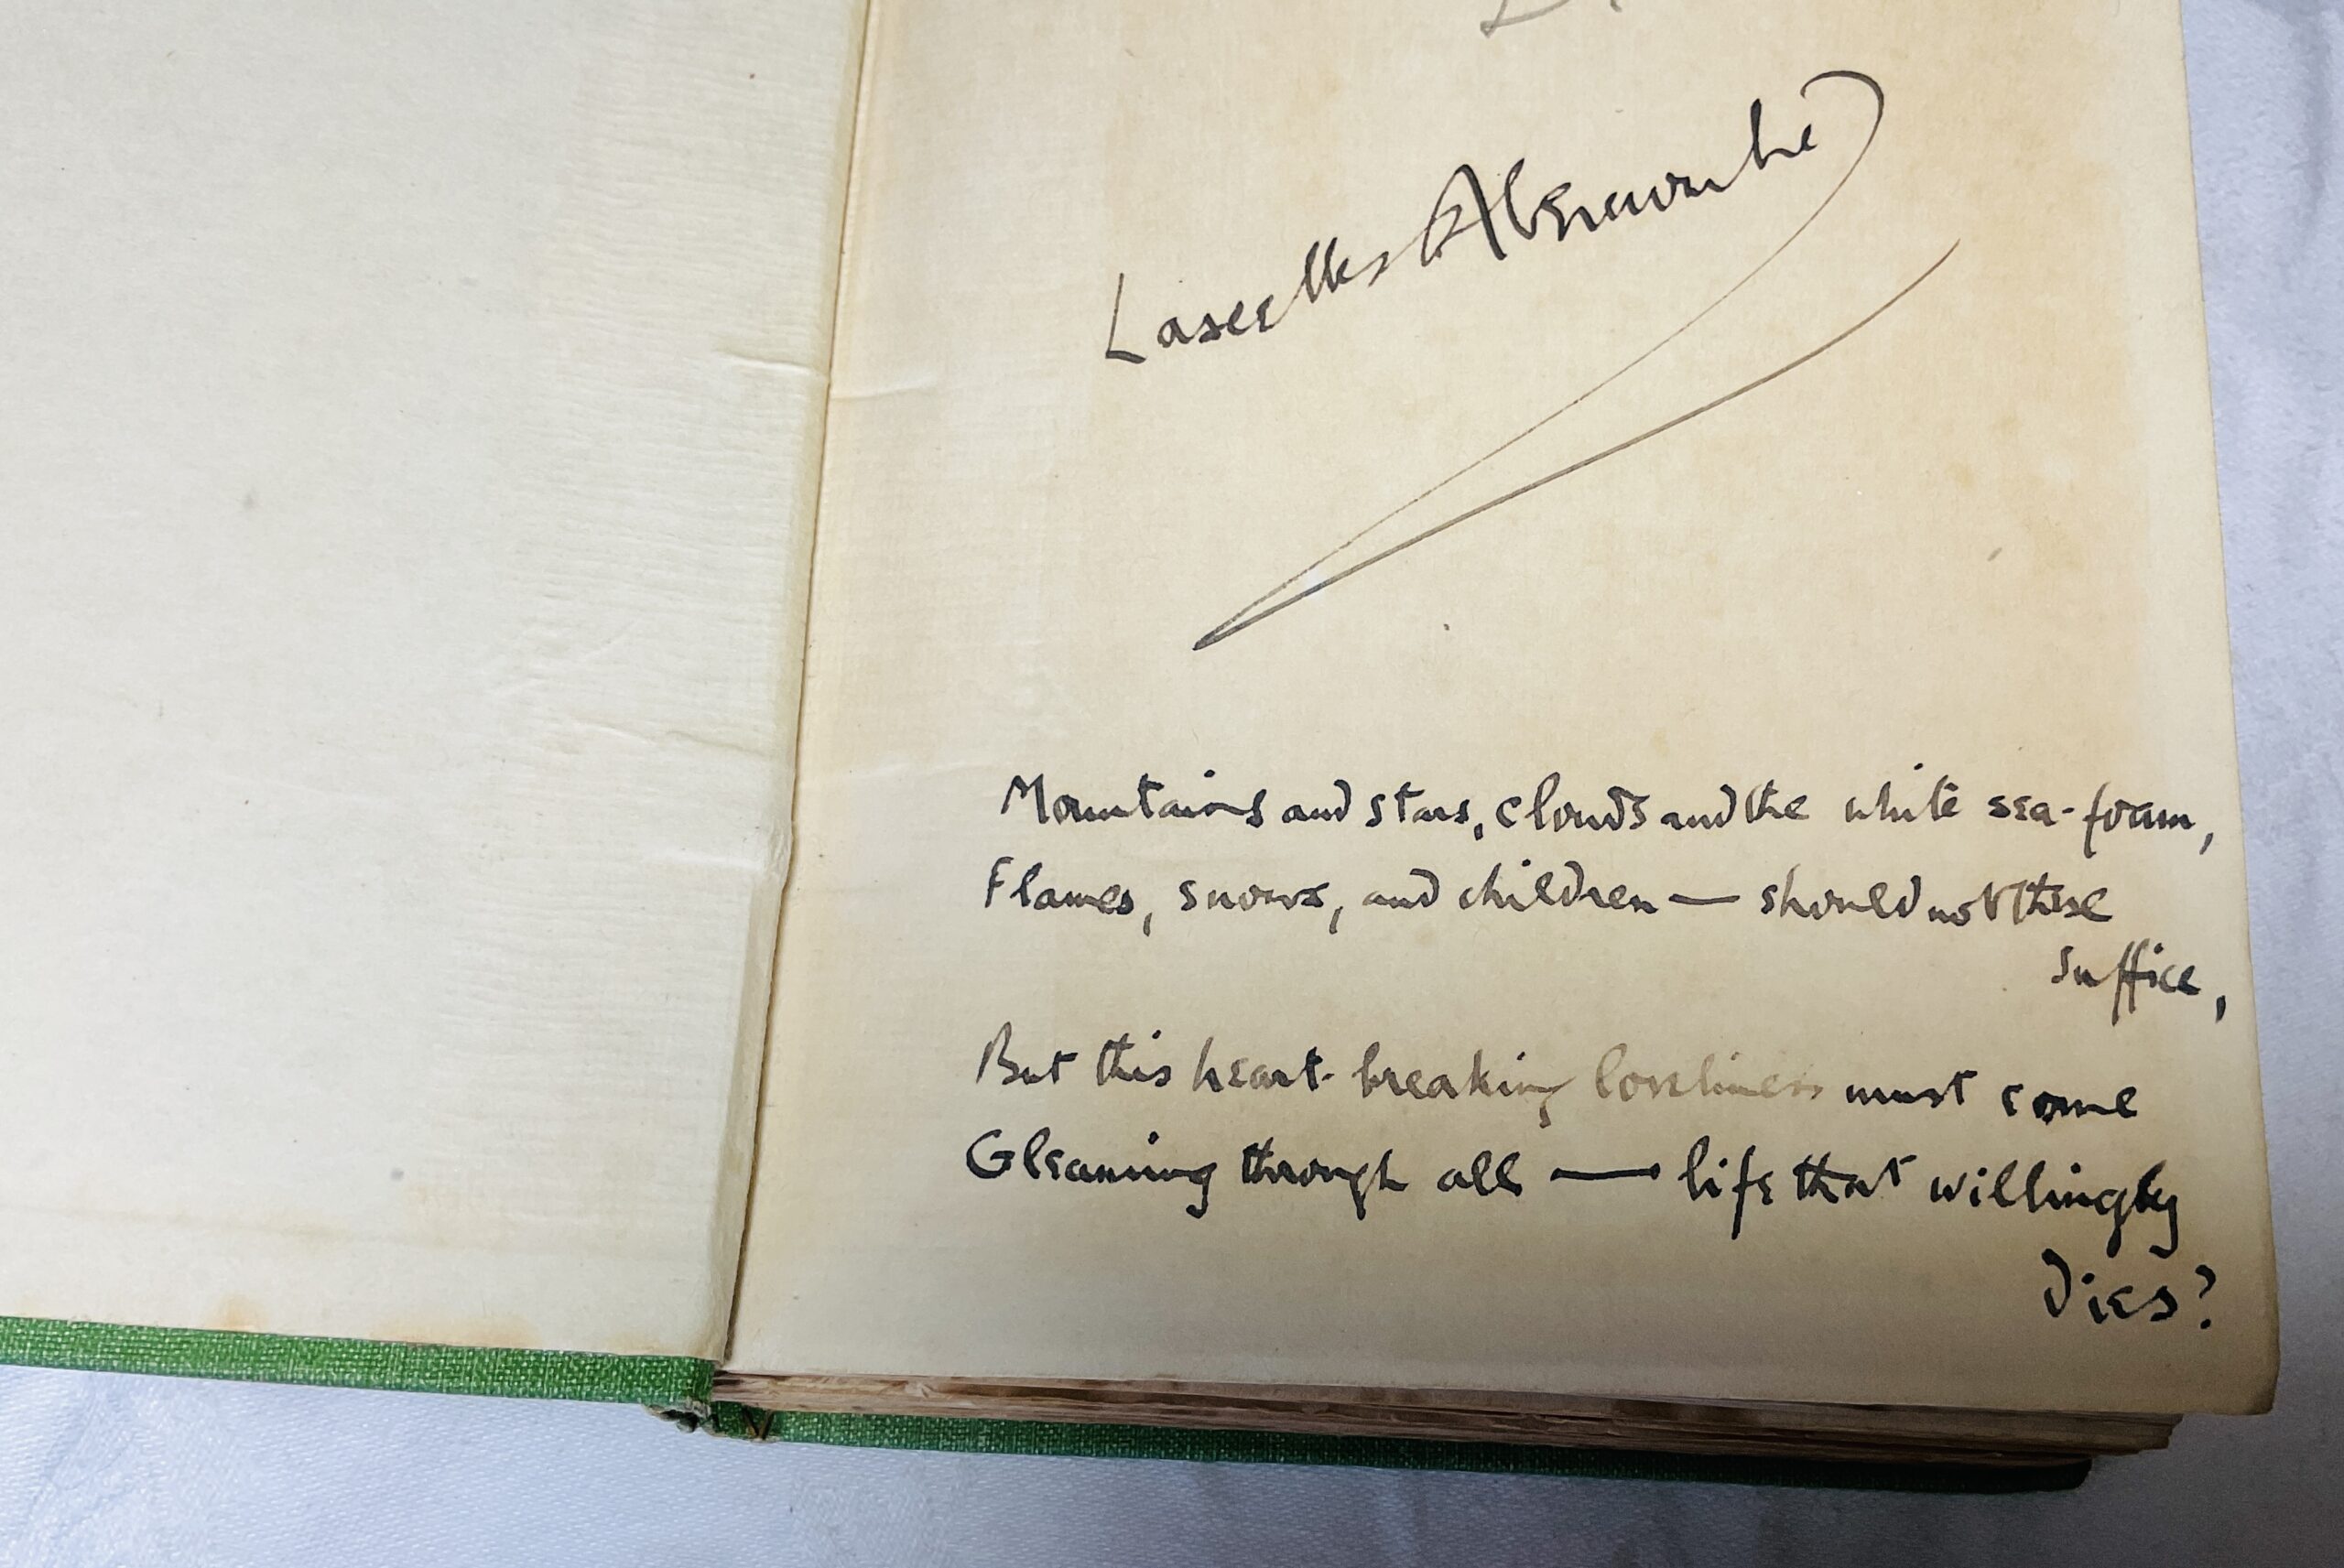 Lascelles Abercrombie
Mountains and stars, clouds and the white sea-foam,
Flames, snows, and children — should not these
suffice,
But this heart-breaking loveliness must come
Gleaming through all — life that willingly
dies?